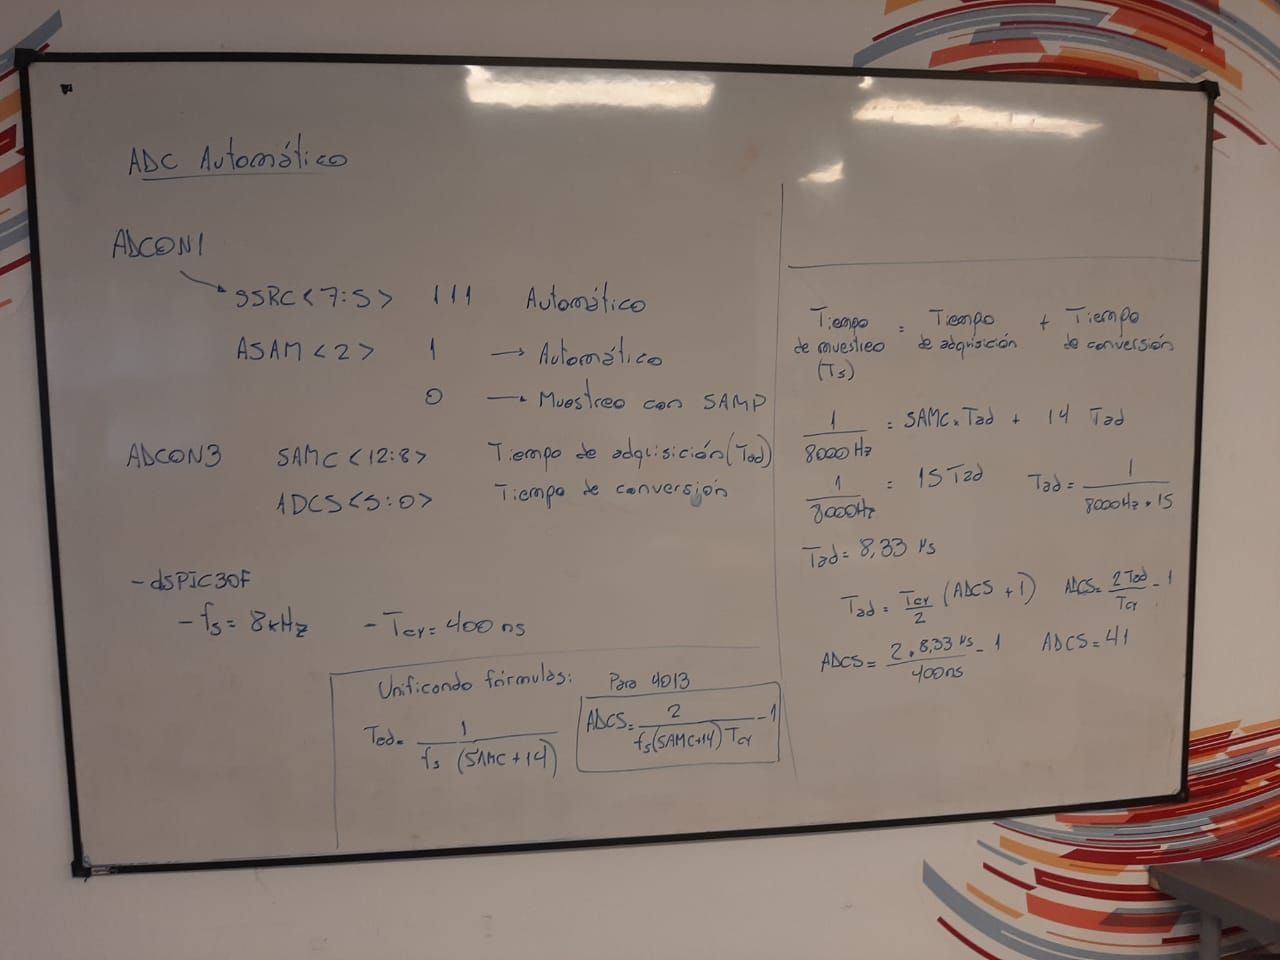 ADC Automático
ADCON1
SSRC<7:5> 111 Automático
ASAM<2> 1 → Automático
0 → Muestreo con SAMP
ADCON3 SAMC<12:8> Tiempo de adquisición(Tad)
ADCS<5:0> Tiempo de conversión
- dsPIC30F
- fs = 8kHz - Tcy = 400 ns
Unificando fórmulas: Para 4013
Tad = 1 / (fs (SAMC + 14))
ADCS = 2 / (fs(SAMC+14) Tcy) - 1
Tiempo de muestreo (Ts) = Tiempo de adquisición + Tiempo de conversión
1 / 8000Hz = SAMC × Tad + 14 Tad
1 / 8000Hz = 15 Tad Tad = 1 / (8000Hz * 15)
Tad = 8,33 µs
Tad = Tcy / 2 (ADCS + 1) ADCS = 2 Tad / Tcy - 1
ADCS = 2 * 8,33 µs / 400ns - 1 ADCS = 41